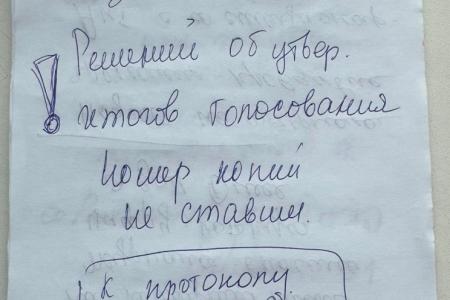 ! Решений об утвер.
итогов голосования
номер копий
не ставим.
к протоколу